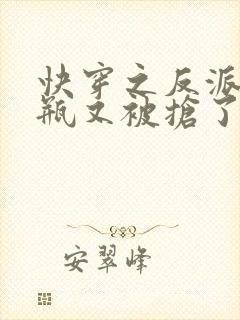 快穿之反派
瓶又被搶了
安翠峰